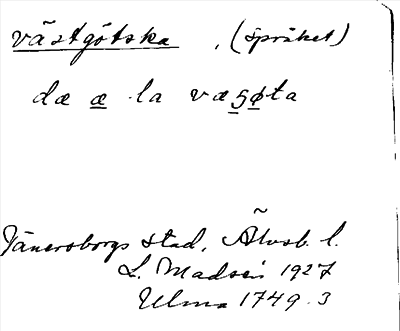 västgötska, (språket)
dæ æ la væsøta
Vänersborgs stad, Älvsb. l.
L. Madsén 1927
Ulma 1749.3